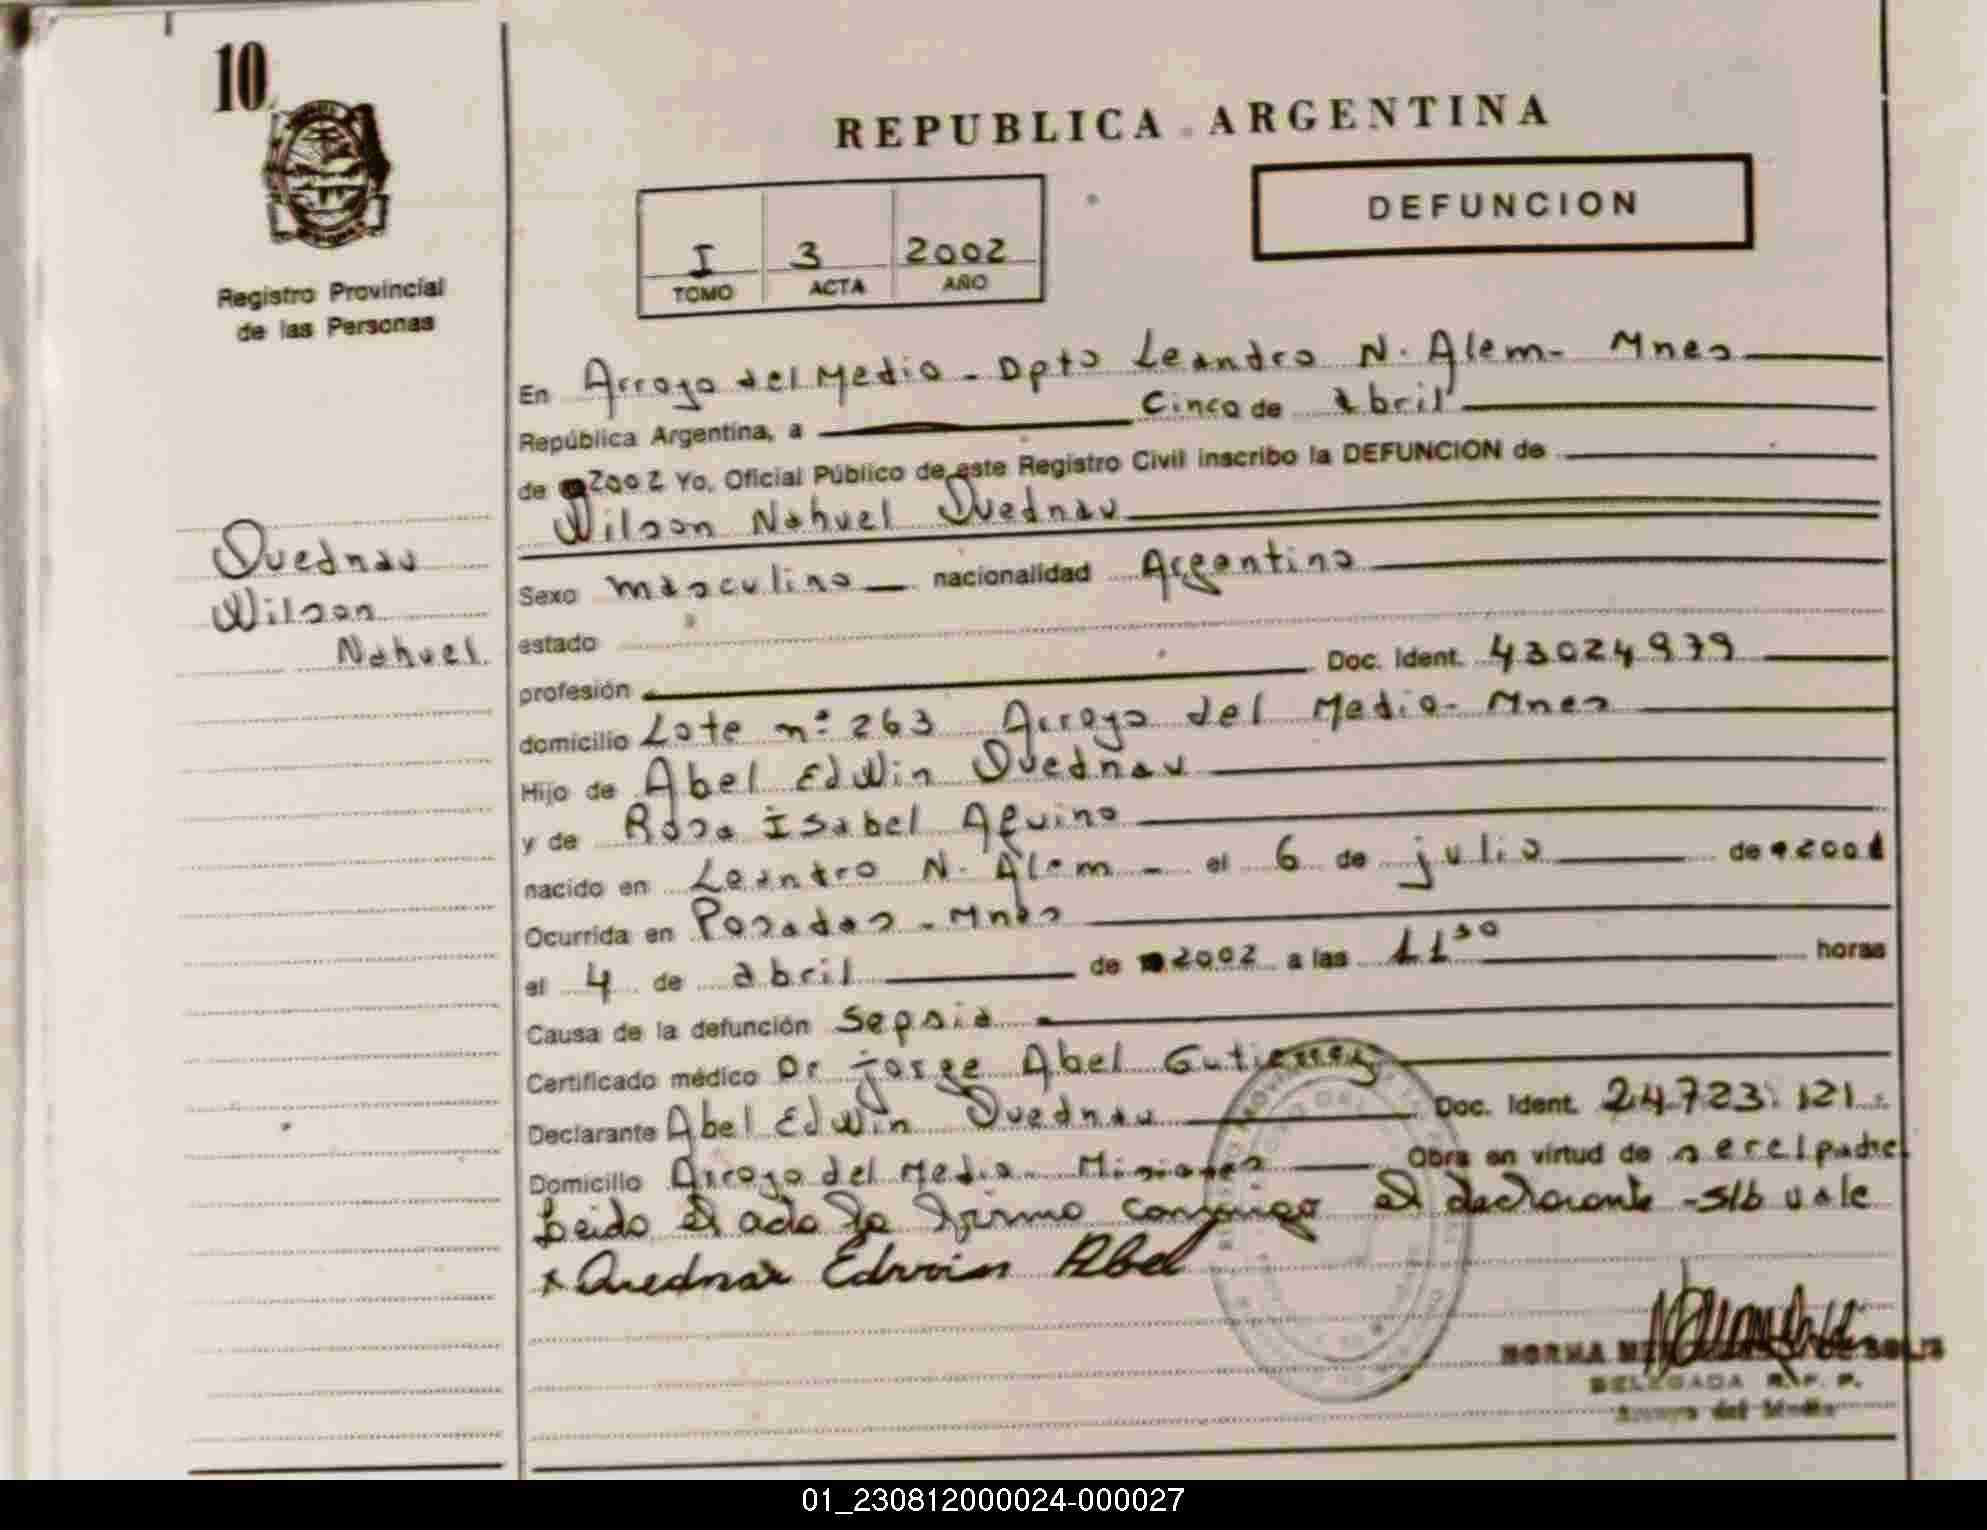 10
Registro Provincial
de las Personas
Quednau
Wilson
Nahuel.
REPUBLICA ARGENTINA
DEFUNCION
I 3 2002
TOMO ACTA AÑO
En Arroyo del Medio - Dpto Leandro N. Alem - Mnes
República Argentina, a Cinco de abril
de 2002 Yo, Oficial Público de este Registro Civil inscribo la DEFUNCION de
Wilson Nahuel Quednau
Sexo masculino nacionalidad Argentina
estado
profesión Doc. Ident. 43024979
domicilio Lote nº 263 Arroyo del Medio - Mnes
Hijo de Abel Edwin Quednau
y de Rosa Isabel Aquino
nacido en Leandro N. Alem - el 6 de julio de 2001
Ocurrida en Posadas - Mnes
el 4 de abril de 2002 a las 11 30 horas
Causa de la defunción Sepsis
Certificado médico Dr jorge Abel Gutierrez
Declarante Abel Edwin Quednau Doc. Ident. 24.723.121
Domicilio Arroyo del Medio - Misiones Obra en virtud de ser el padre.
Leido el acta la firma conmigo el declarante - s/b vale
x Quednau Edwin Abel
NORMA SOLIS
DELEGADA R. P. P.
Arroyo del Medio
01_230812000024-000027